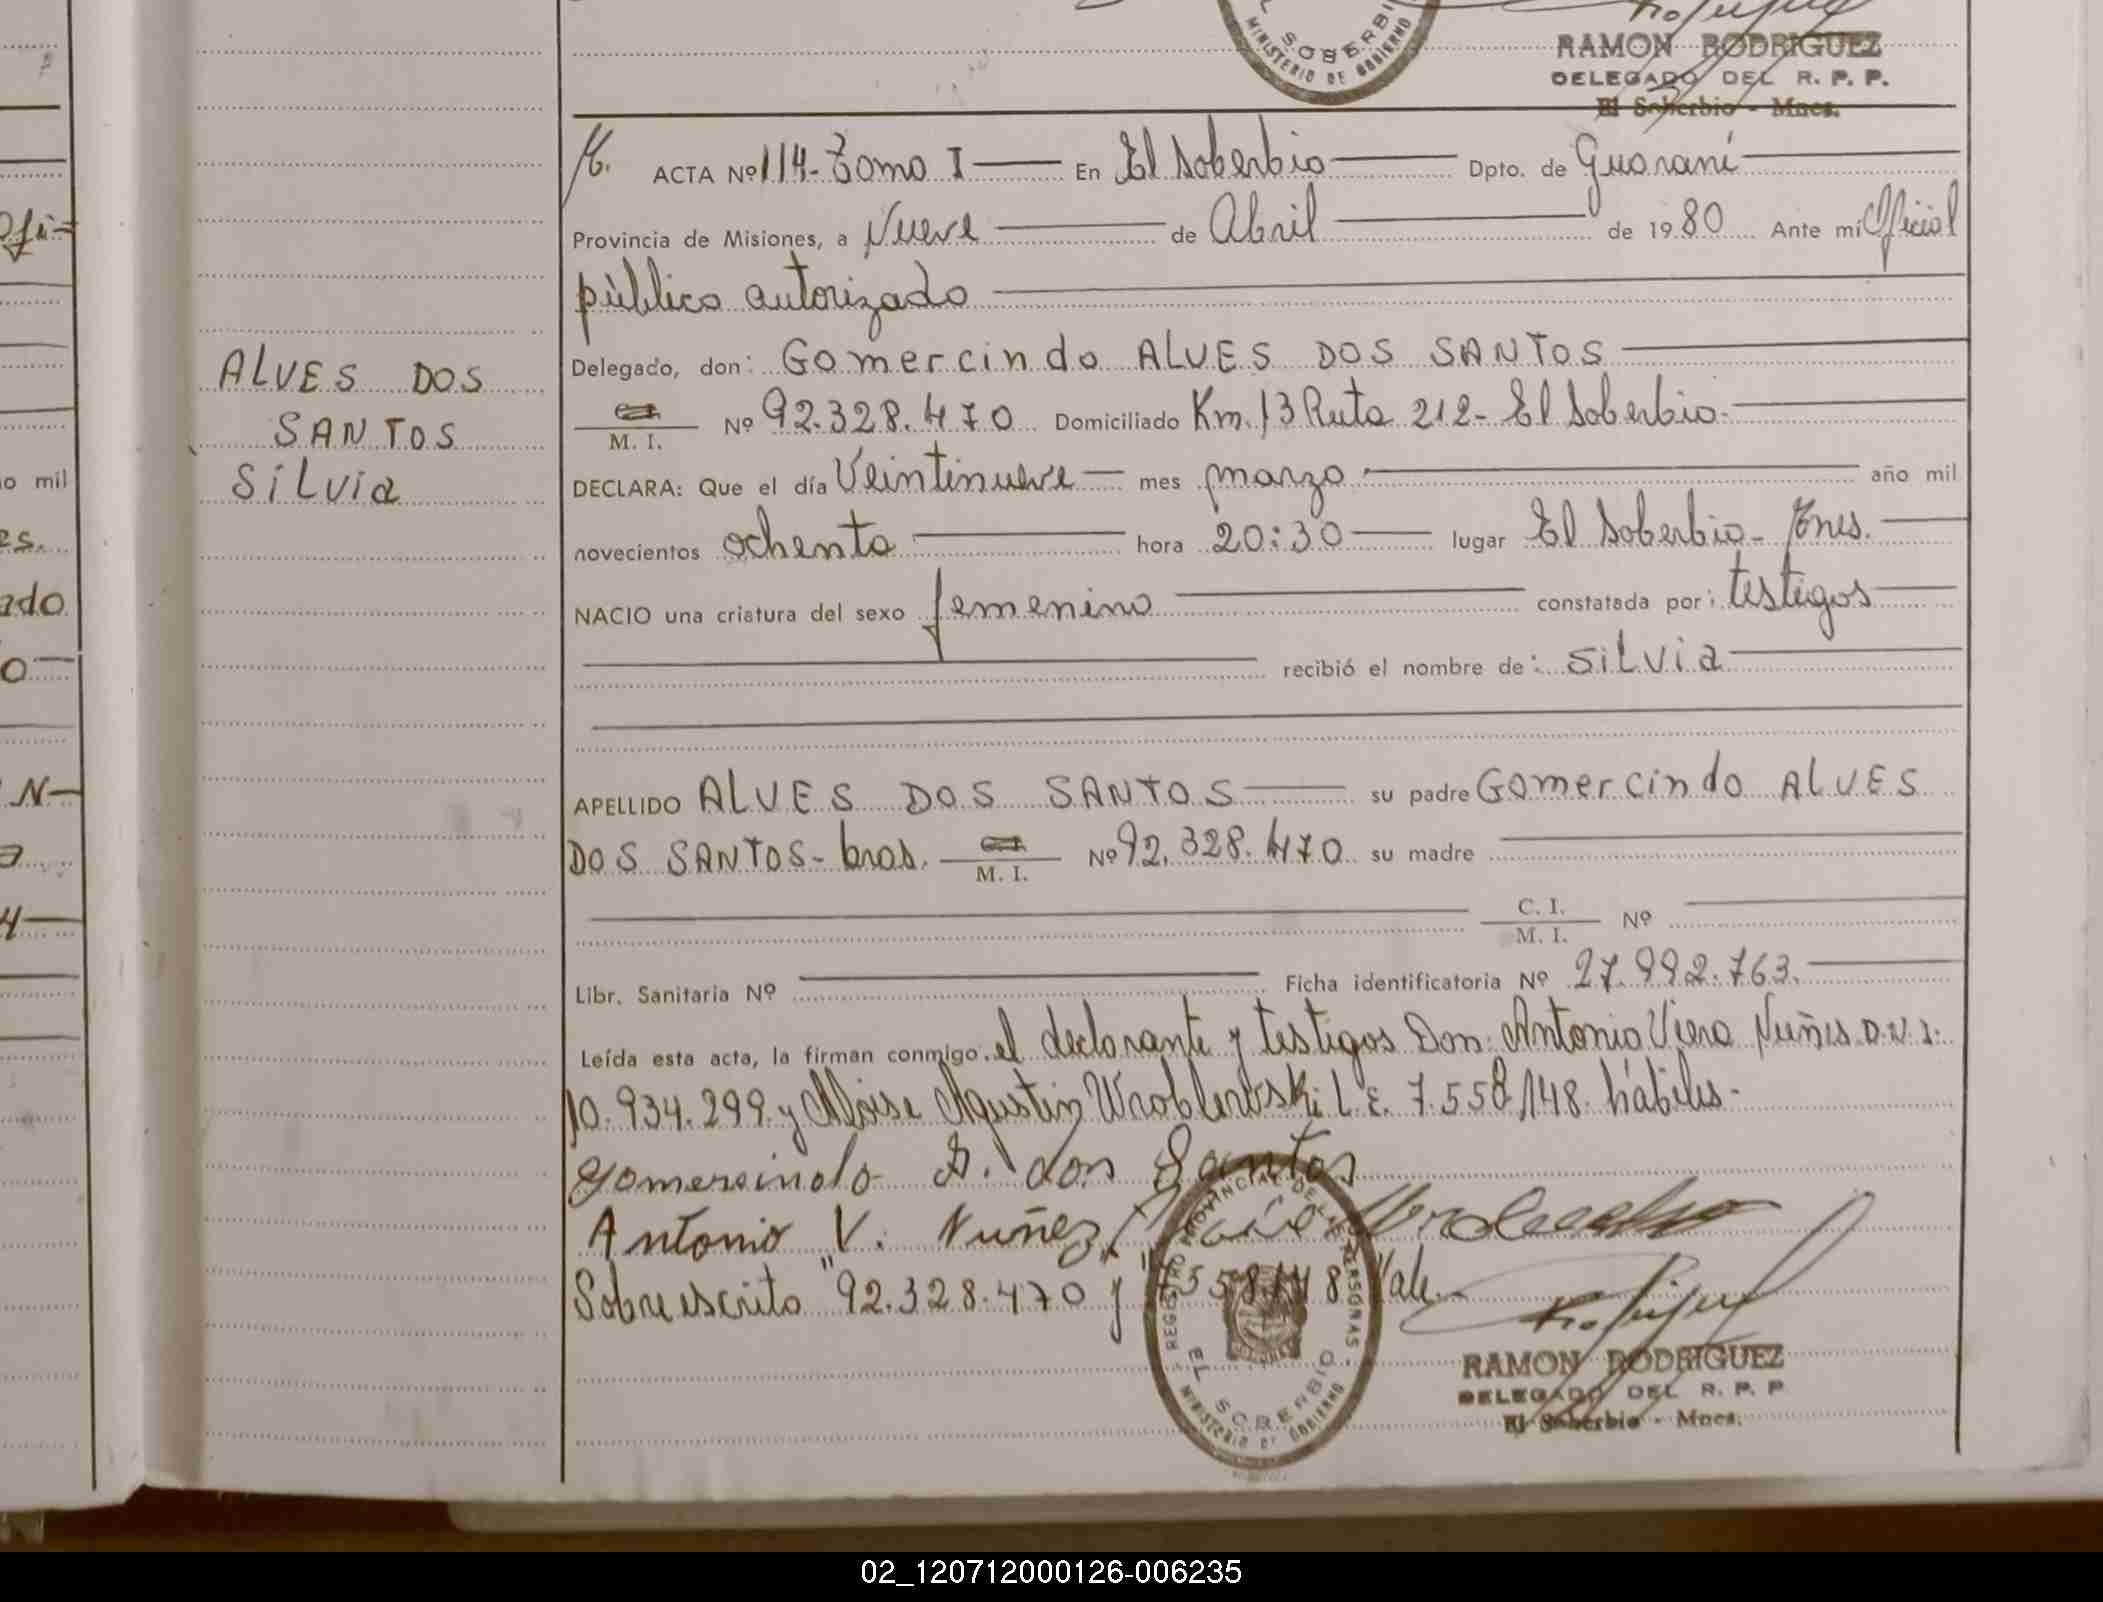 RAMON RODRIGUEZ
DELEGADO DEL R. P. P.
El Soberbio - Mnes.
SOBERBIO
MINISTERIO DE GOBIERNO
ACTA Nº 114- Tomo I En El Soberbio Dpto. de Guaraní
Provincia de Misiones, a Nueve de Abril de 1980 Ante mí Oficial
público autorizado
Delegado, don: Gomercindo ALVES DOS SANTOS
M. I. Nº 92.328.470 Domiciliado Km. 13 Ruta 212- El Soberbio.
DECLARA: Que el día Veintinueve mes marzo año mil
novecientos ochenta hora 20:30 lugar El Soberbio- Mnes.
NACIO una criatura del sexo femenino constatada por: testigos
recibió el nombre de: Silvia
APELLIDO ALVES DOS SANTOS su padre Gomercindo ALVES
DOS SANTOS- bras. M. I. Nº 92.328.470 su madre
C. I.
M. I. Nº
Libr. Sanitaria Nº Ficha identificatoria Nº 27.992.763.
Leída esta acta, la firman conmigo el declarante y testigos Don: Antonio Viera Nuñes D.N.I.
10.934.299 y Aloise Agustin Wroblewski L.E. 7.558.148. hábiles-
Gomersindo A. dos Santos
Antonio V. Nuñez
Sobre escrito "92.328.470 y "7.558.148" Vale.-
REGISTRO PROVINCIAL DE LAS PERSONAS
EL SOBERBIO
MINISTERIO DE GOBIERNO
RAMON RODRIGUEZ
DELEGADO DEL R. P. P
El Soberbio - Mnes.
ALVES DOS
SANTOS
Silvia
o mil
es.
ado
02_120712000126-006235